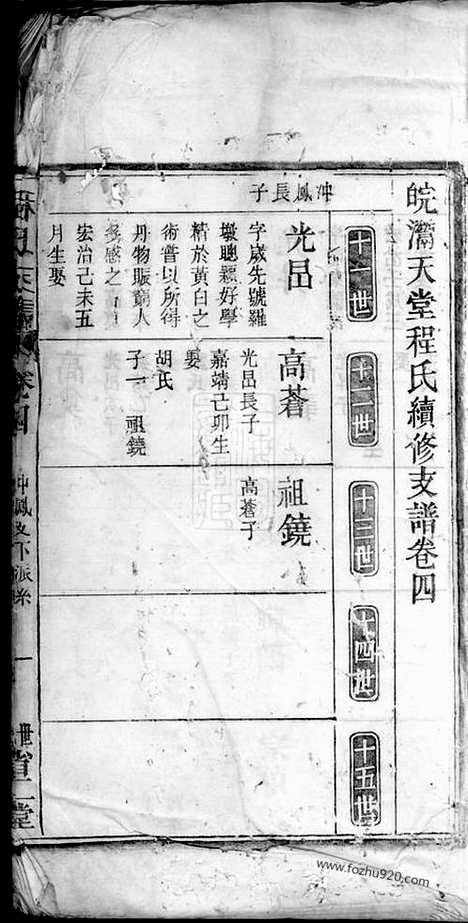 皖灊天堂程氏續修支譜卷四
十一世
十二世
十三世
十四世
十五世
冲鳳長子
光昌
字歲先號羅
墩聰穎好學
精於黃白之
術嘗以所得
丹物賑窮人
多感之
宏治己未五
月生娶
高蒼
光昌長子
嘉靖己卯生
娶
胡氏
子一 祖鐃
祖鐃
高蒼子
冲鳳支下派系
一
世省三堂
www.fozhu920.com